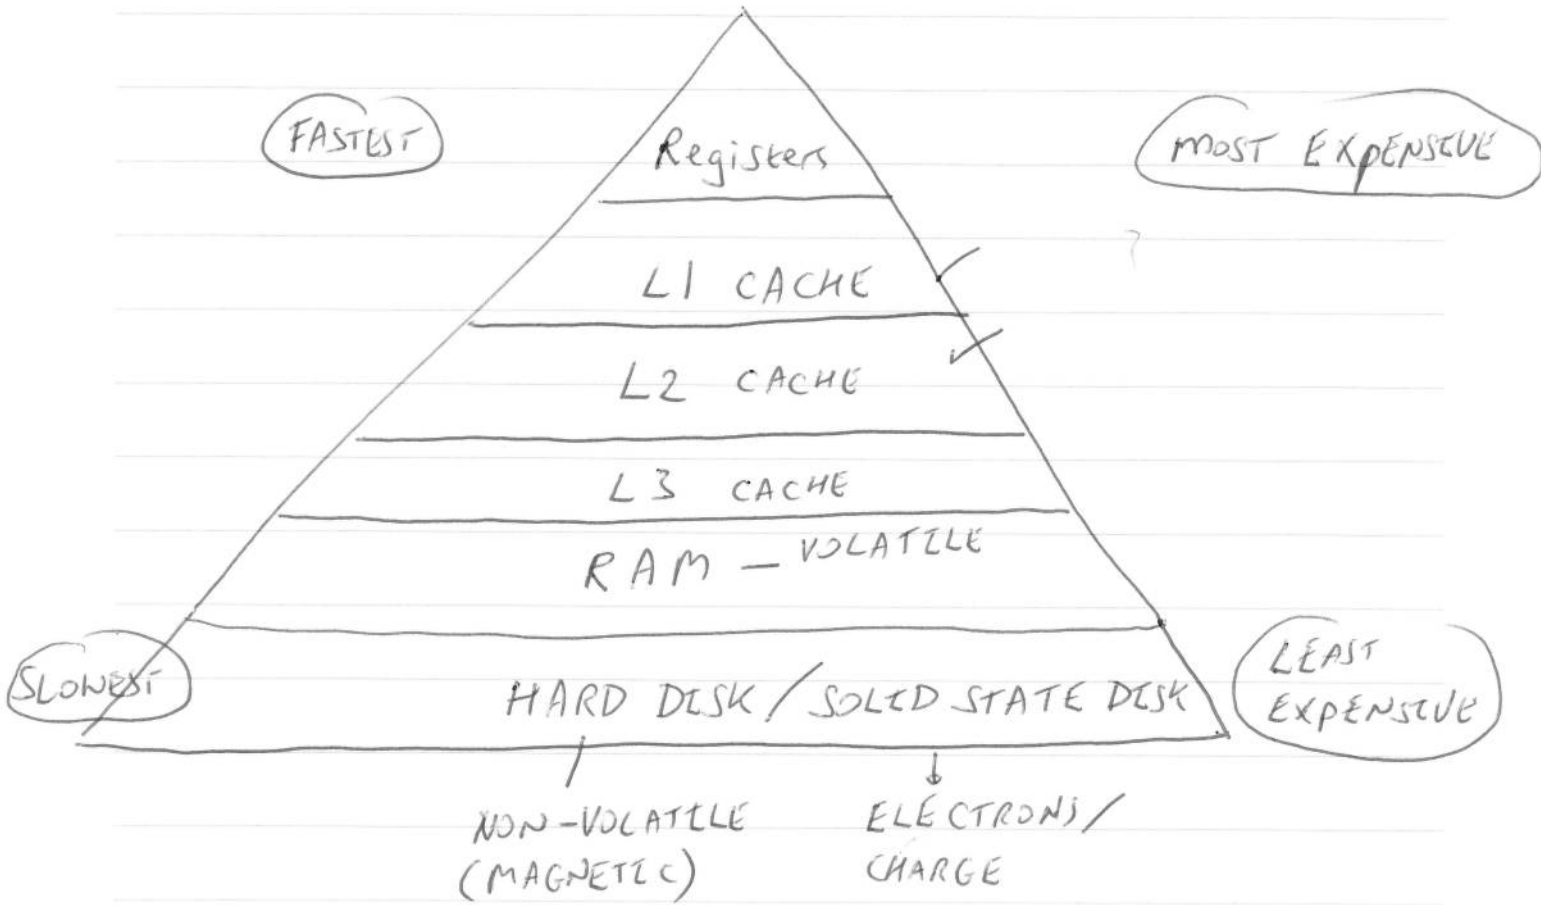 FASTEST
Registers
MOST EXPENSIVE
L1 CACHE
L2 CACHE
L3 CACHE
RAM – VOLATILE
SLOWEST
HARD DISK / SOLID STATE DISK
LEAST
EXPENSIVE
NON-VOLATILE
(MAGNETIC)
ELECTRONS/
CHARGE